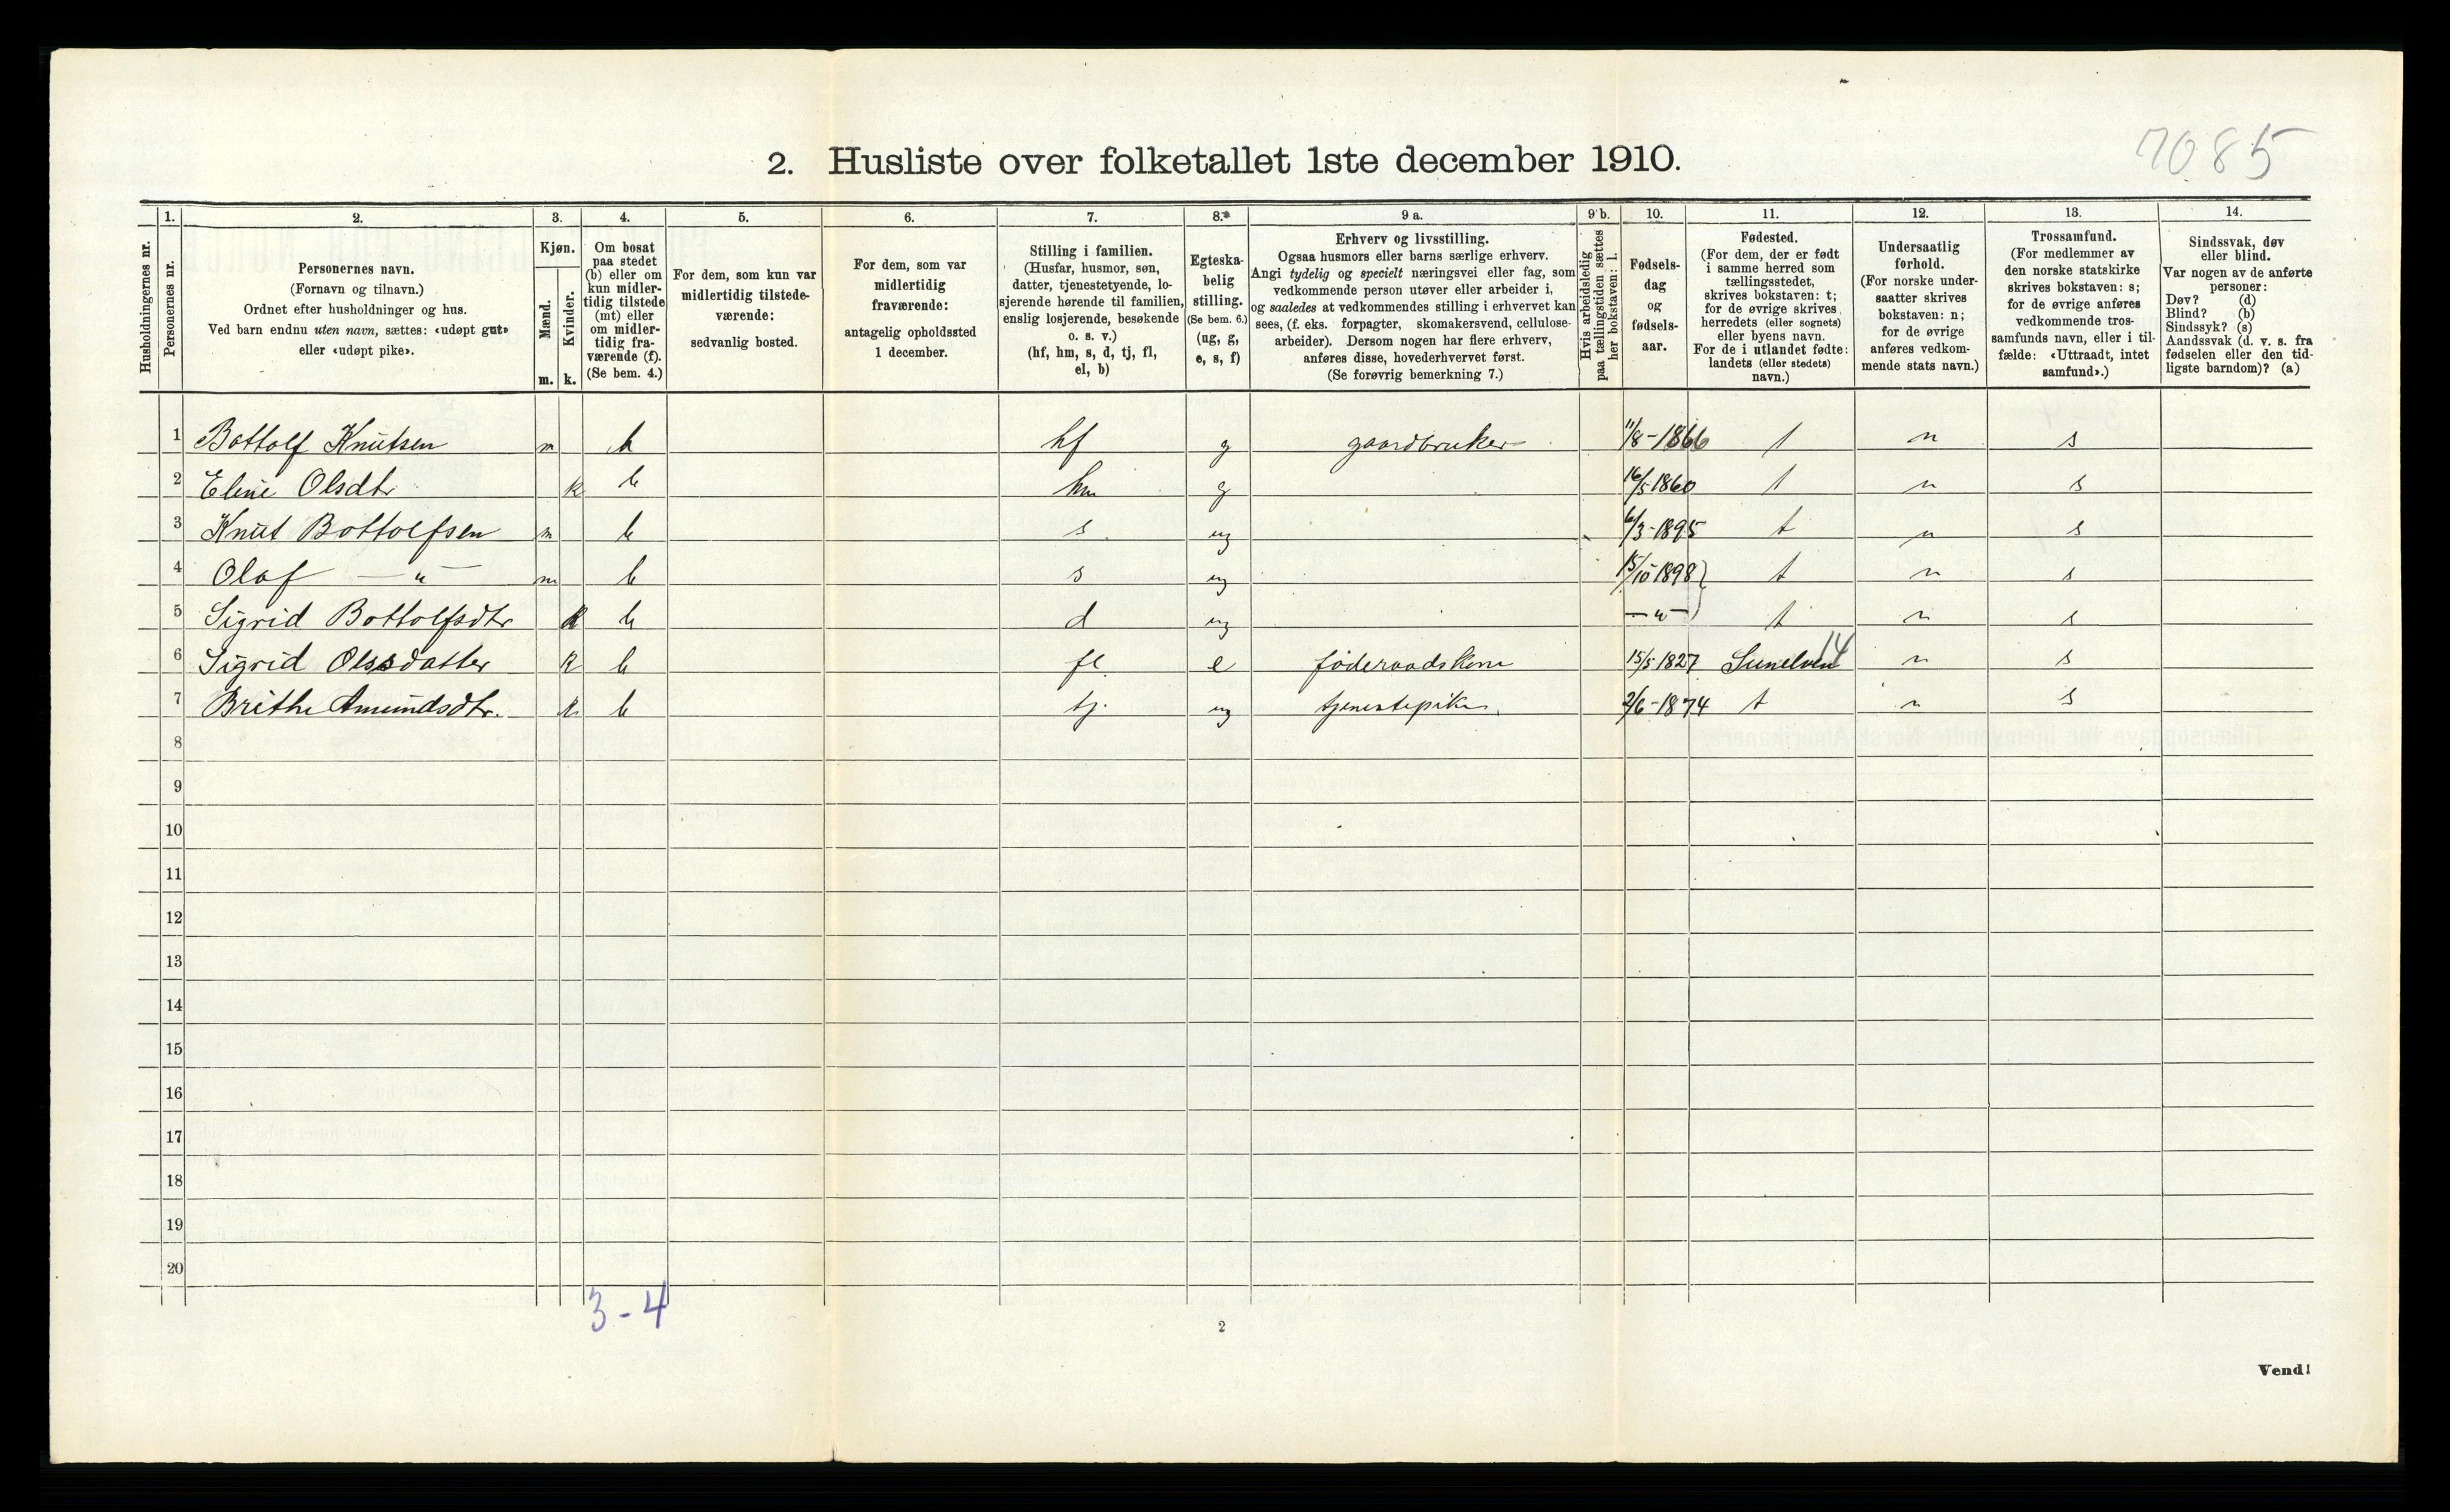 7085
2. Husliste over folketallet 1ste december 1910.
Husholdningernes nr.
1. Personernes nr.
2. Personernes navn.
(Fornavn og tilnavn.)
Ordnet efter husholdninger og hus.
Ved barn endnu uten navn, sættes: «udøpt gut»
eller «udøpt pike».
3. Kjøn.
Mænd. m.
Kvinder. k.
4. Om bosat
paa stedet
(b) eller om
kun midler-
tidig tilstede
(mt) eller
om midler-
tidig fra-
værende (f).
(Se bem. 4.)
5. For dem, som kun var
midlertidig tilstede-
værende:
sedvanlig bosted.
6. For dem, som var
midlertidig
fraværende:
antagelig opholdssted
1 december.
7. Stilling i familien.
(Husfar, husmor, søn,
datter, tjenestetyende, lo-
sjerende hørende til familien,
enslig losjerende, besøkende
o. s. v.)
(hf, hm, s, d, tj, fl,
el, b)
8. Egteska-
belig
stilling.
(Se bem. 6.)
(ug, g,
e, s, f)
9 a. Erhverv og livsstilling.
Ogsaa husmors eller barns særlige erhverv.
Angi tydelig og specielt næringsvei eller fag, som
vedkommende person utøver eller arbeider i,
og saaledes at vedkommendes stilling i erhvervet kan
sees, (f. eks. forpagter, skomakersvend, cellulose-
arbeider). Dersom nogen har flere erhverv,
anføres disse, hovederhvervet først.
(Se forøvrig bemerkning 7.)
9 b. Hvis arbeidsledig
paa tællingstiden sættes
her bokstaven: l.
10. Fødsels-
dag
og
fødsels-
aar.
11. Fødested.
(For dem, der er født
i samme herred som
tællingsstedet,
skrives bokstaven: t;
for de øvrige skrives
herredets (eller sognets)
eller byens navn.
For de i utlandet fødte:
landets (eller stedets)
navn.)
12. Undersaatlig
forhold.
(For norske under-
saatter skrives
bokstaven: n;
for de øvrige
anføres vedkom-
mende stats navn.)
13. Trossamfund.
(For medlemmer av
den norske statskirke
skrives bokstaven: s;
for de øvrige anføres
vedkommende tros-
samfunds navn, eller i til-
fælde: «Uttraadt, intet
samfund».)
14. Sindssvak, døv
eller blind.
Var nogen av de anførte
personer:
Døv? (d)
Blind? (b)
Sindssyk? (s)
Aandssvak (d. v. s. fra
fødselen eller den tid-
ligste barndom)? (a)
1 Bottolf Knutsen m b hf g gaardbruker 11/8-1866 t n s
2 Eline Olsdtr k b hm g 16/5 1860 t n s
3 Knut Bottolfsen m b s ug 6/3-1895 t n s
4 Olaf — " — m b s ug 15/10 1898 t n s
5 Sigrid Bottolfsdtr k b d ug — " — t n s
6 Sigrid Olssdatter k b fl e føderaadskone 15/5 1827 Sunelven 14 n s
7 Brithe Amundsdtr. k b tj. ug tjenestepike 2/6-1874 t n s
8
9
10
11
12
13
14
15
16
17
18
19
20
3-4
2
Vend!